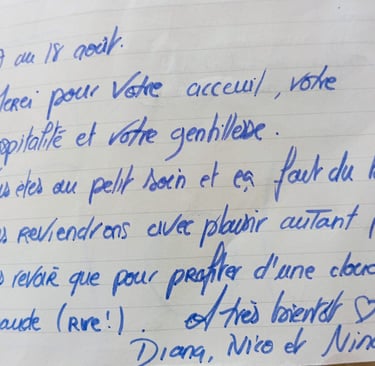 au 18 août.
pour votre acceuil, votre
et votre gentillesse.
êtes au petit soin et ça fait du
REViendrons avec plaisir autant
revoir que pour profiter d'une
(Rire!). A très bientôt ♡
Diana, Nico et Nina